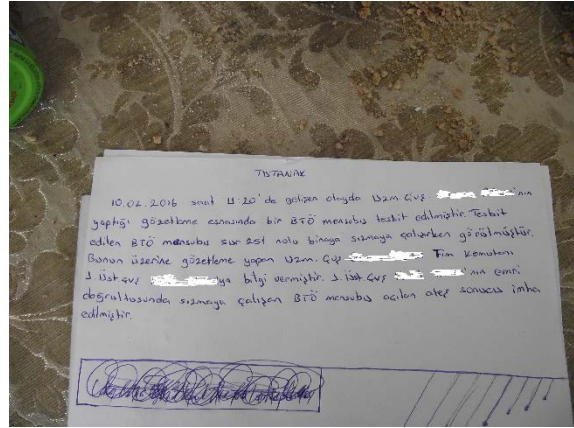 TUTANAK
10.02.2016 saat 11:20'de gelişen olayda Uzm. Çvş. 'nın
yaptığı gözetleme esnasında bir BTÖ mensubu tesbit edilmiştir. Tesbit
edilen BTÖ mensubu sur 251 nolu binaya sızmaya çalışırken görülmüştür.
Bunun üzerine gözetleme yapan Uzm. Çvş Tim Komutanı
J. Üst Çvş 'ya bilgi vermiştir. J. Üst Çvş 'nın emri
doğrultusunda sızmaya çalışan BTÖ mensubu açılan ateş sonucu imha
edilmiştir.